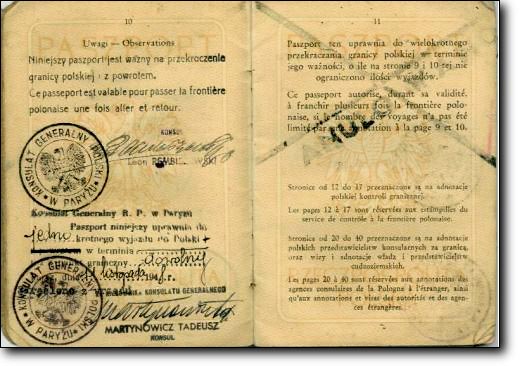 10
Uwagi – Observations
Niniejszy paszport jest ważny na przekroczenie
granicy polskiej i z powrotem.
Ce passeport est valable pour passer la frontière
polonaise une fois aller et retour.
KONSUL
Leon
KONSULAT GENERALNY POLSKI
W PARYŻU
Konsulat Generalny R. P. w Paryżu
Paszport niniejszy uprawnia do
jedno krotnego wyjazdu do Polski
w terminie
KONSULATU GENERALNEGO
KONSULAT GENERALNY POLSKI
W PARYŻU
MARTYNOWICZ TADEUSZ
KONSUL
11
Paszport ten uprawnia do wielokrotnego
przekraczania granicy polskiej w terminie
jego ważności, o ile na stronie 9 i 10 tej nie
ograniczono ilości wyjazdów.
Ce passeport autorise, durant sa validité,
à franchir plusieurs fois la frontière polo-
naise, si le nombre des voyages n'a pas été
limité par annotation à la page 9 et 10.
Stronice od 12 do 17 przeznaczone są na adnotacje
polskiej kontroli granicznej.
Les pages 12 à 17 sont réservées aux estampilles du
service de contrôle à la frontière polonaise.
Stronice od 20 do 40 przeznaczone są na adnotacje
polskich przedstawicielstw konsularnych za granicą,
oraz wizy i adnotacje władz i przedstawicielstw
cudzoziemskich.
Les pages 20 à 40 sont réservées aux annotations des
agences consulaires de la Pologne à l'étranger, ainsi
qu'aux annotations et visas des autorités et des agen-
ces étrangères.